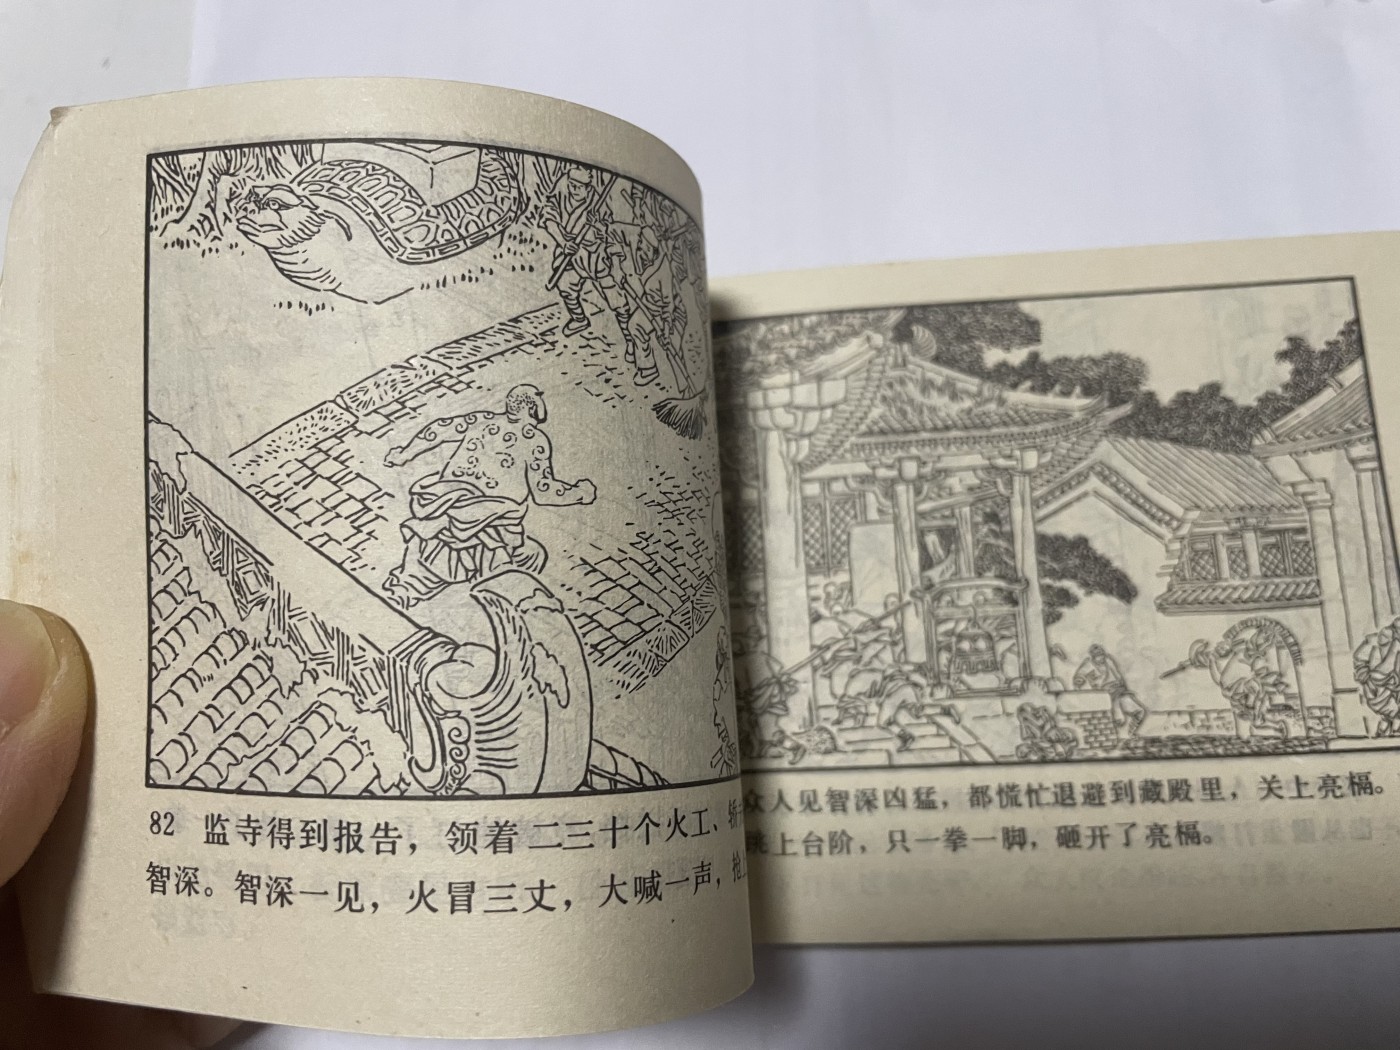 82 监寺得到报告，领着二三十个火工、轿
智深。智深一见，火冒三丈，大喊一声，抢
众人见智深凶猛，都慌忙退避到藏殿里，关上亮槅。
上台阶，只一拳一脚，砸开了亮槅。